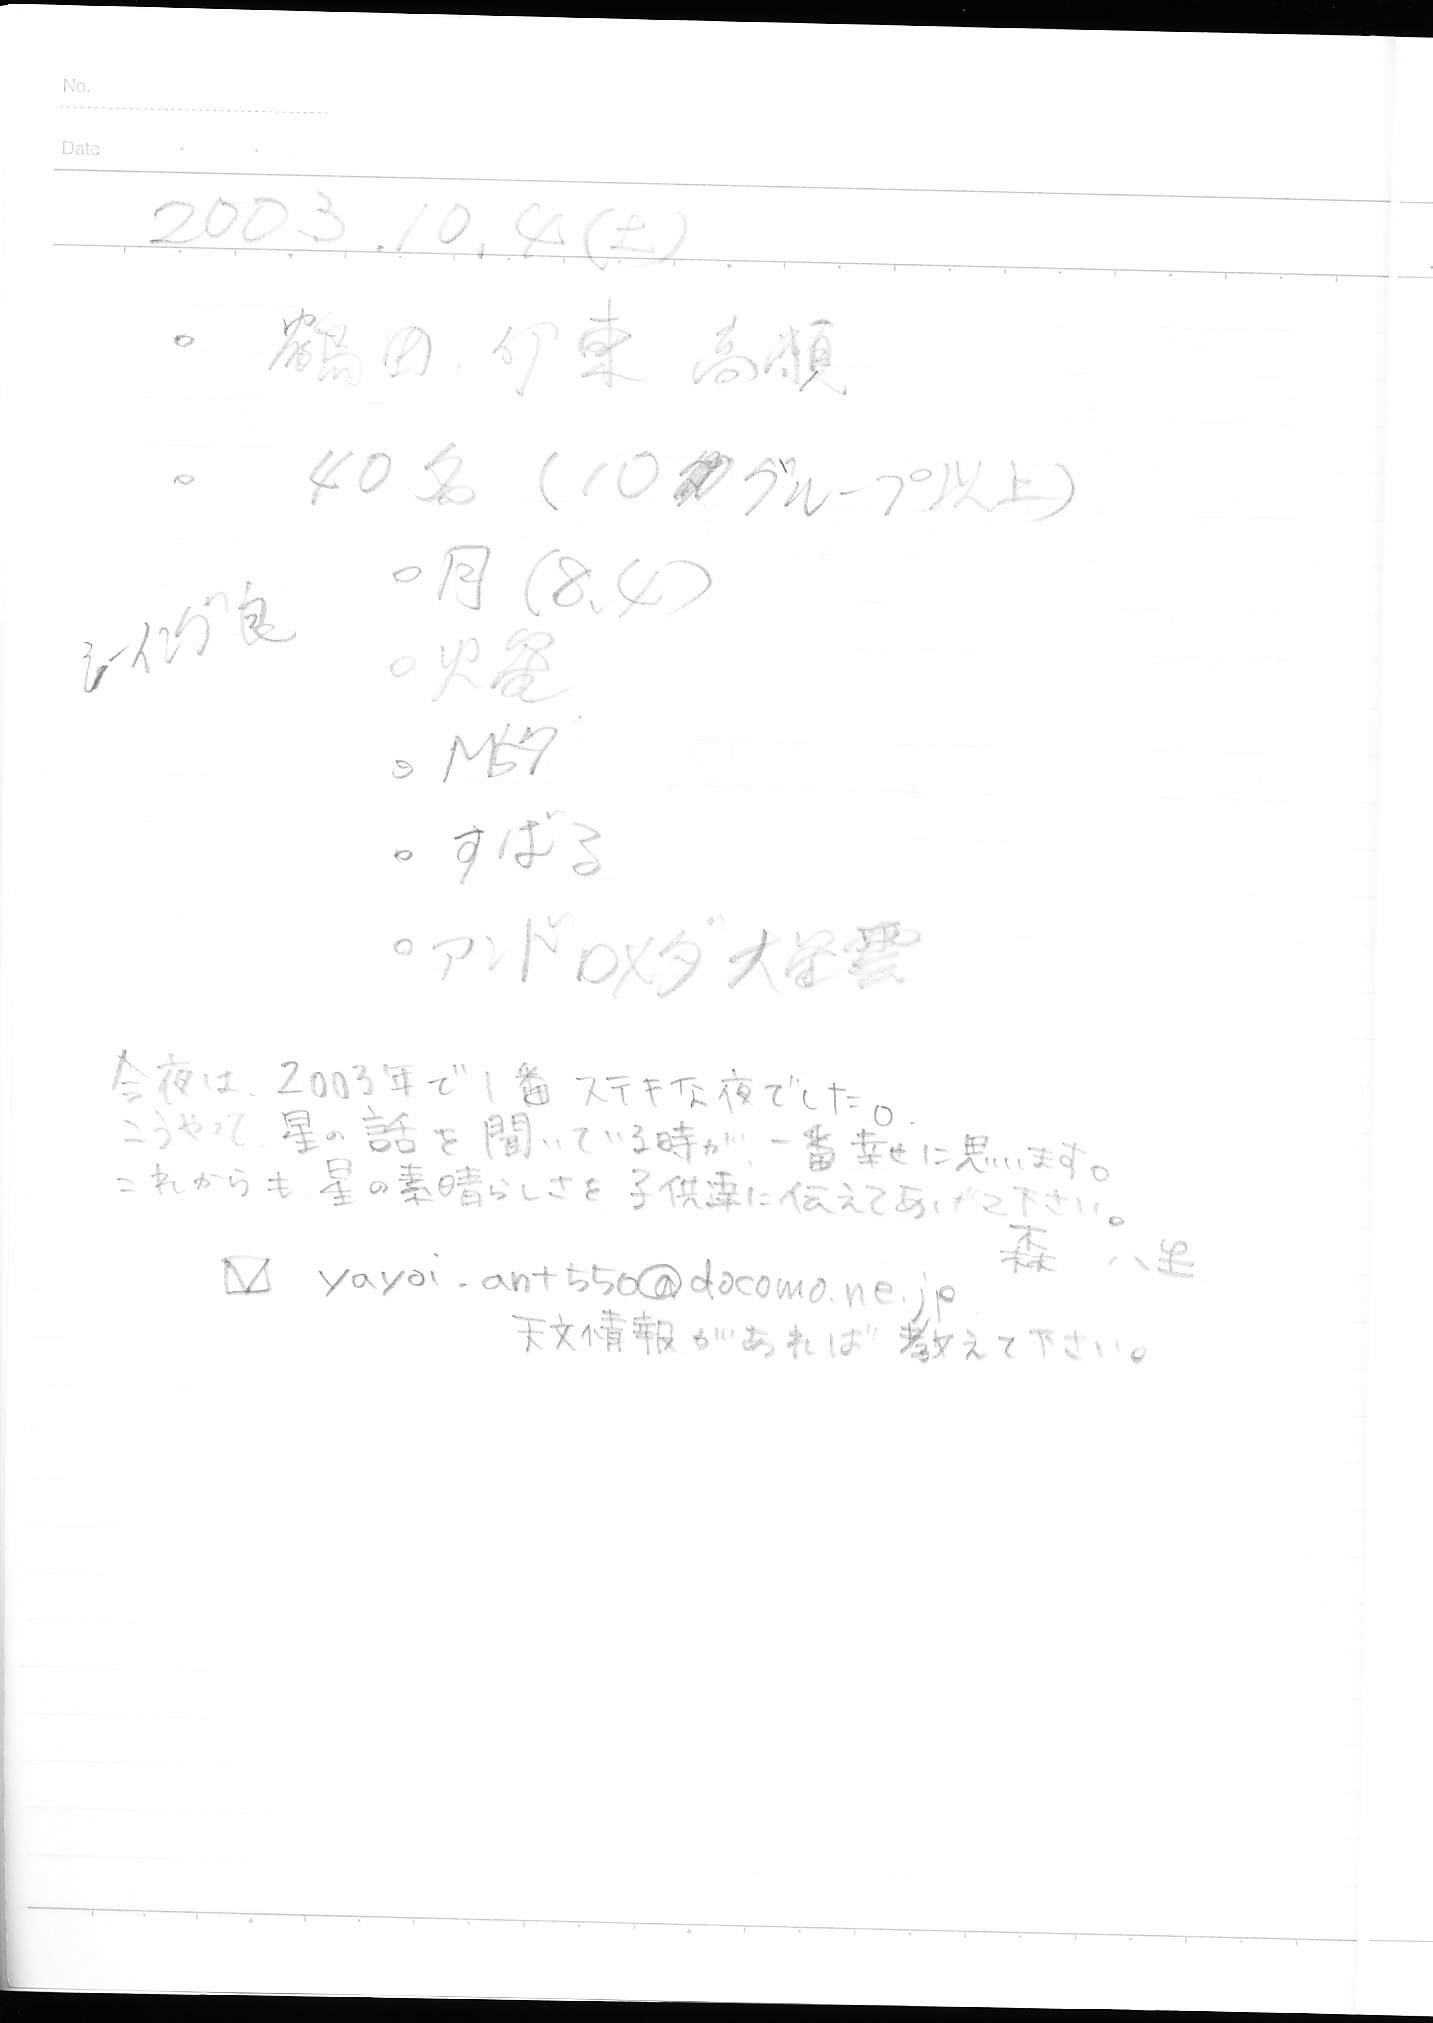 No.
Date
2003.10.4(土)
鶴田、伊東 高瀬
40名 (10グループ以上)
月 (8.4)
シーイング良
火星
M57
すばる
アンドロメダ大星雲
今夜は、2003年で1番ステキな夜でした。
こうやって星の話を聞いている時が、一番幸せに思います。
これからも星の素晴らしさを子供達に伝えてあげて下さい。
森 八生
yayoi-ant550@docomo.ne.jp
天文情報があれば教えて下さい。